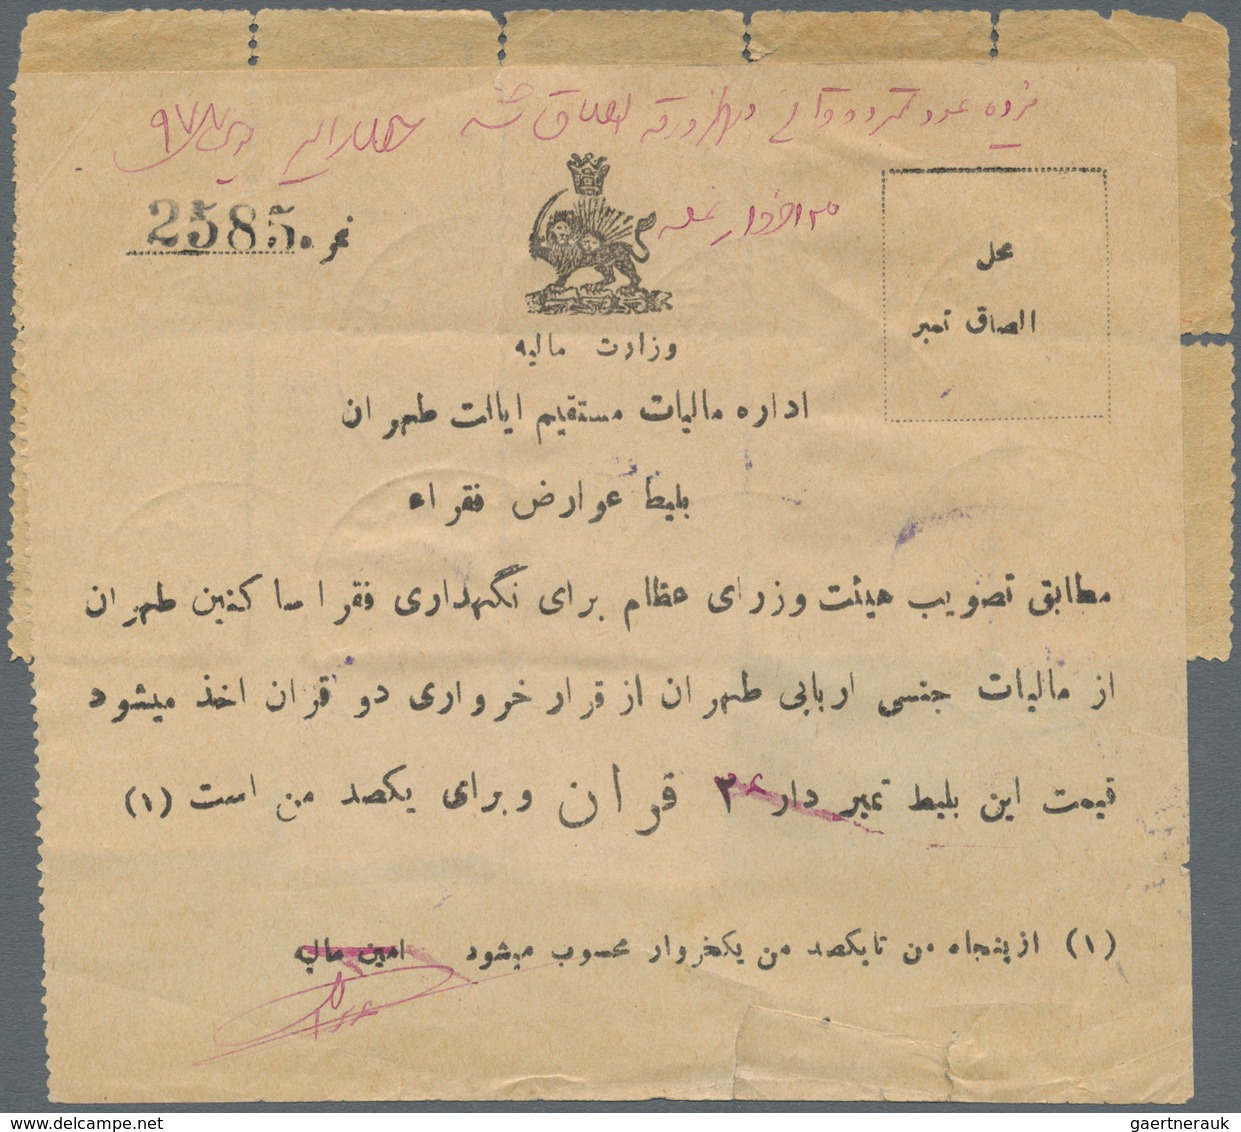 نمره 2585
محل
الصاق تمبر
وزارت مالیه
اداره مالیات مستقیم ایالت طهران
بلیط عوارض فقراء
مطابق تصویب هیئت وزرای عظام برای نگهداری فقرا ساکنین طهران
از مالیات جنسی اربابی طهران از قرار خرواری دو قران اخذ میشود
قیمت این بلیط تمبر دار ۲ قران و برای یکصد من است (۱)
(۱) از پنجاه من تا یکصد من یکخروار محسوب میشود امین مالیه
gaertnerauk